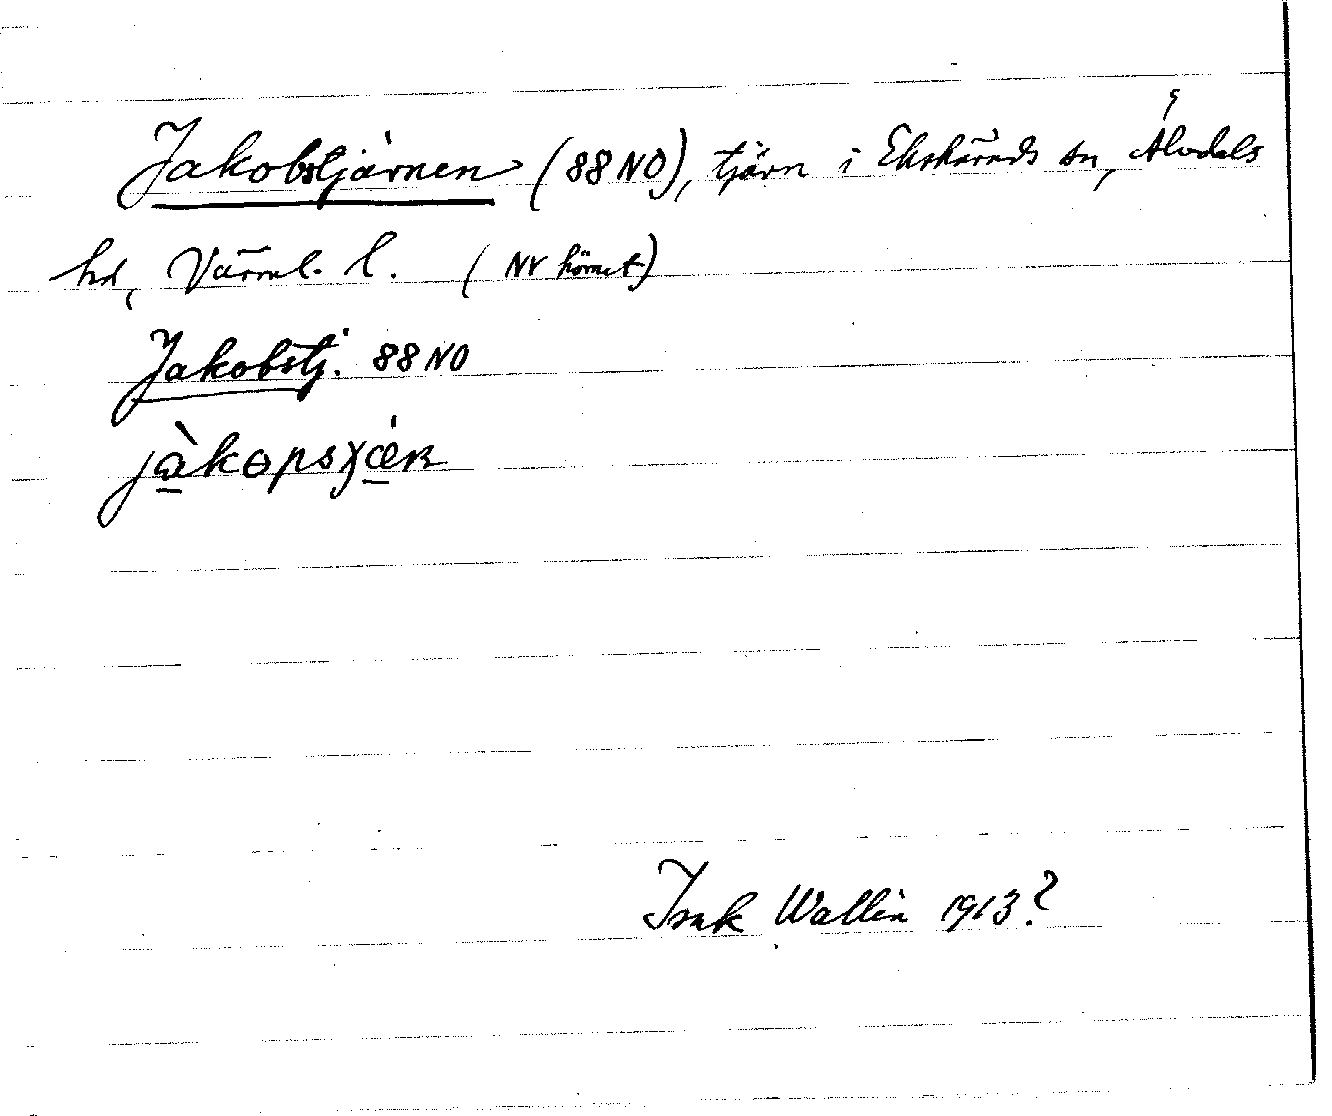 Jakobstjärnen (88 NO), tjärn i Ekshärads sn, Älvdals
hd, Värml. l. (NV hörnet)
Jakobstj. 88 NO
Isak Wallin 1913?